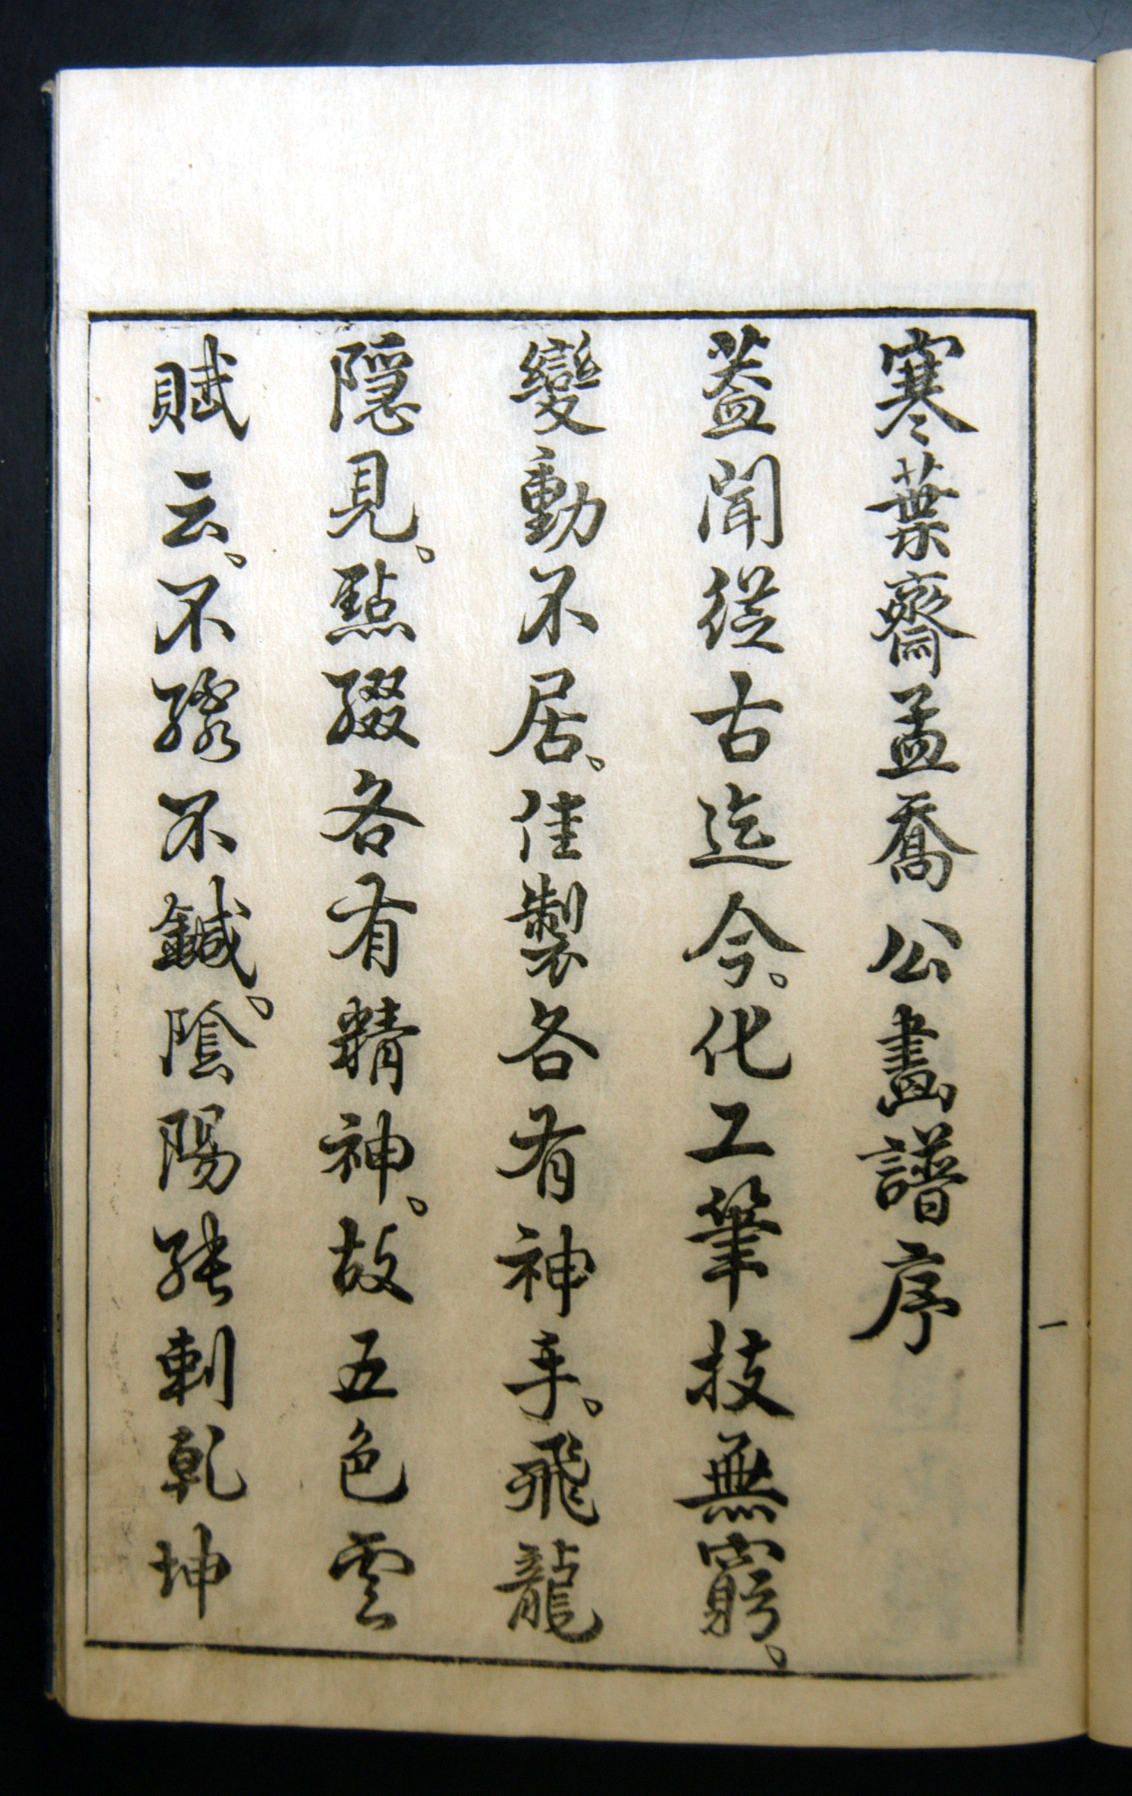 寒葉齋孟喬公畫譜序
蓋聞從古迄今。化工筆技無窮。
變動不居。佳製各有神手。飛龍
隱見。點綴各有精神。故五色雲
賦云。不䋲不鍼。陰陽
乾坤
一